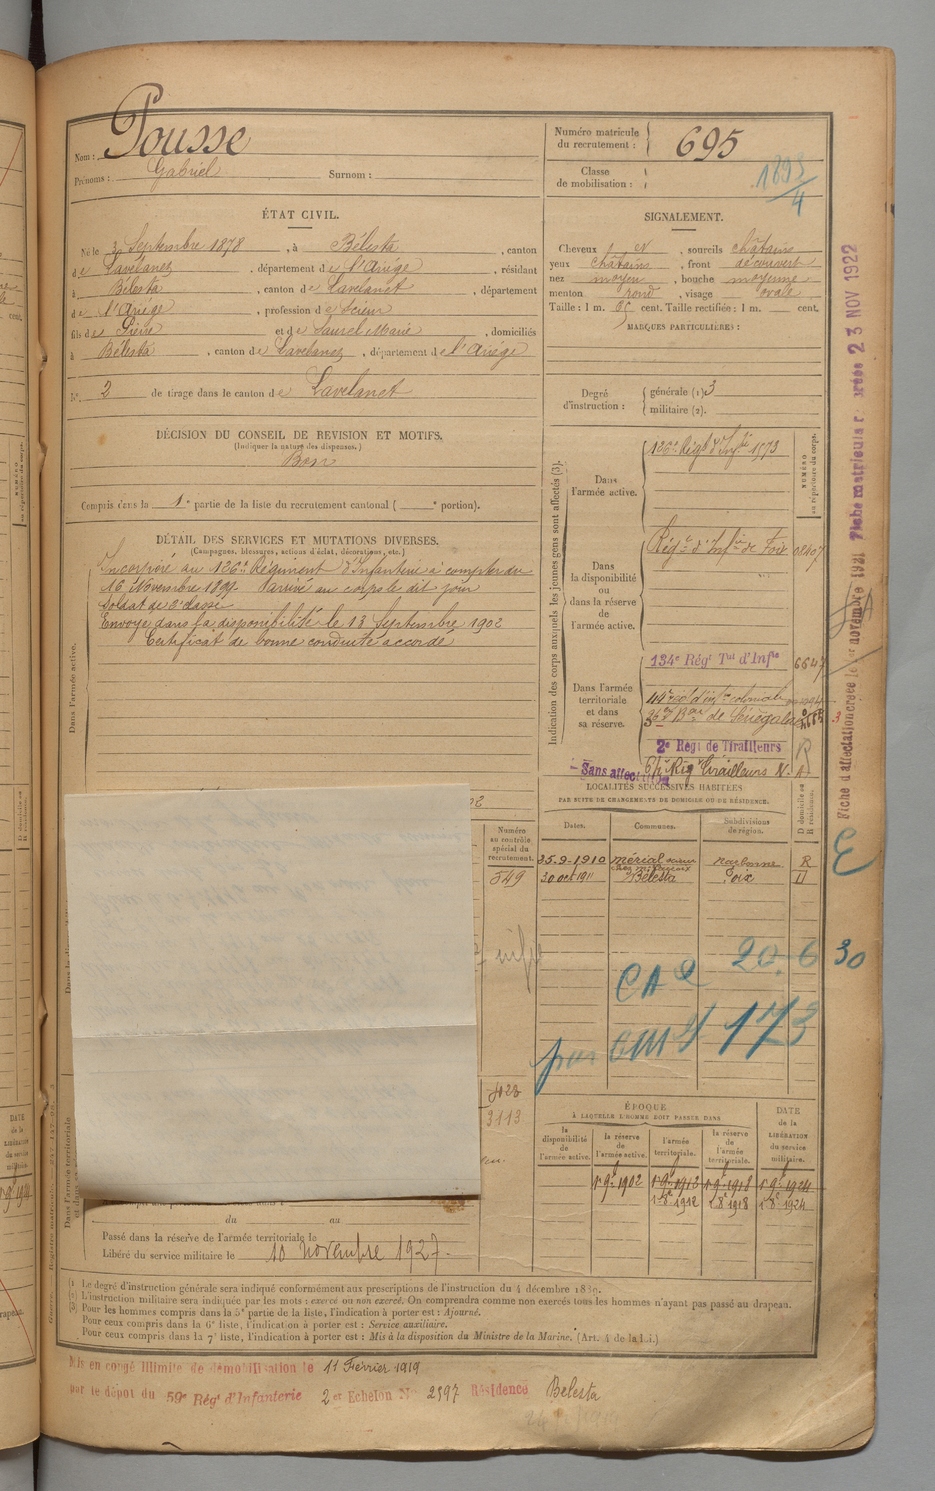 Nom : Pousse
Prénoms : Gabriel Surnom :
Numéro matricule du recrutement : 695
Classe de mobilisation : 1898/4
ÉTAT CIVIL.
Né le 30 Septembre 1878, à Bélesta, canton
de Lavelanet, département de l'Ariége, résidant
à Bélesta, canton de Lavelanet, département
de l'Ariége, profession de Scieur
fils de Pierre et de Laurel Marie, domiciliés
à Bélesta, canton de Lavelanet, département de l'Ariége
N° 2 de tirage dans le canton de Lavelanet
SIGNALEMENT.
Cheveux et, sourcils châtains
yeux châtains, front découvert
nez moyen, bouche moyenne
menton rond, visage ovale
Taille : 1 m. 65 cent. Taille rectifiée : 1 m. cent.
MARQUES PARTICULIÈRES :
Degré d'instruction : générale (1) 3
militaire (2).
DÉCISION DU CONSEIL DE REVISION ET MOTIFS.
(Indiquer la nature des dispenses.)
Bon
Compris dans la 1e partie de la liste du recrutement cantonal ( e portion).
DÉTAIL DES SERVICES ET MUTATIONS DIVERSES.
(Campagnes, blessures, actions d'éclat, décorations, etc.)
Incorporé au 126e Régiment d'Infanterie à compter du
16 Novembre 1899. Arrivé au corps le dit jour
Soldat de 2e classe
Envoyé dans la disponibilité le 13 Septembre 1902
Certificat de bonne conduite accordé
Dans l'armée active.
Indication des corps auxquels les jeunes gens sont affectés (3).
NUMÉRO au répertoire du corps.
Dans l'armée active.
126e Régt d'Infrie 1573
Dans la disponibilité ou dans la réserve de l'armée active.
Régt d'Infrie de Foix 08407
Dans l'armée territoriale et dans sa réserve.
134e Régt Tal d'Infie 6647
36e Bon de Sénégalais
2e Régt de Tirailleurs
Sans affectation
LOCALITÉS SUCCESSIVES HABITÉES
PAR SUITE DE CHANGEMENTS DE DOMICILE OU DE RÉSIDENCE.
Dates. Communes. Subdivisions de région. D domicile ou R résidence.
25-9-1910 Mérial Narbonne R
30 oct 1911 Bélesta Foix D
Numéro au contrôle spécial du recrutement.
549
3113
20.6 30
CA2
173
ÉPOQUE
À LAQUELLE L'HOMME DOIT PASSER DANS
la disponibilité de l'armée active. la réserve de l'armée active. l'armée territoriale. la réserve de l'armée territoriale. DATE de la LIBÉRATION du service militaire.
1r 9e 1902 1r 9e 1912 1r 9e 1918 1r 9e 1924
1r 8e 1912 1r 8e 1918 1r 8e 1924
du au
Passé dans la réserve de l'armée territoriale le
Libéré du service militaire le 10 novembre 1927.
(1) Le degré d'instruction générale sera indiqué conformément aux prescriptions de l'instruction du 4 décembre 1889.
(2) L'instruction militaire sera indiquée par les mots : exercé ou non exercé. On comprendra comme non exercés tous les hommes n'ayant pas passé au drapeau.
(3) Pour les hommes compris dans la 5e partie de la liste, l'indication à porter est : Ajourné.
Pour ceux compris dans la 6e liste, l'indication à porter est : Service auxiliaire.
Pour ceux compris dans la 7e liste, l'indication à porter est : Mis à la disposition du Ministre de la Marine. (Art. 4 de la Loi.)
Mis en congé illimité de démobilisation le 11 Février 1919
par le dépot du 59e Régt d'Infanterie 2e Echelon N° 2397 Résidence Bélesta
Fiche d'affectation créée le 1er novembre 1921 Fiche matricule créées 23 NOV 1922